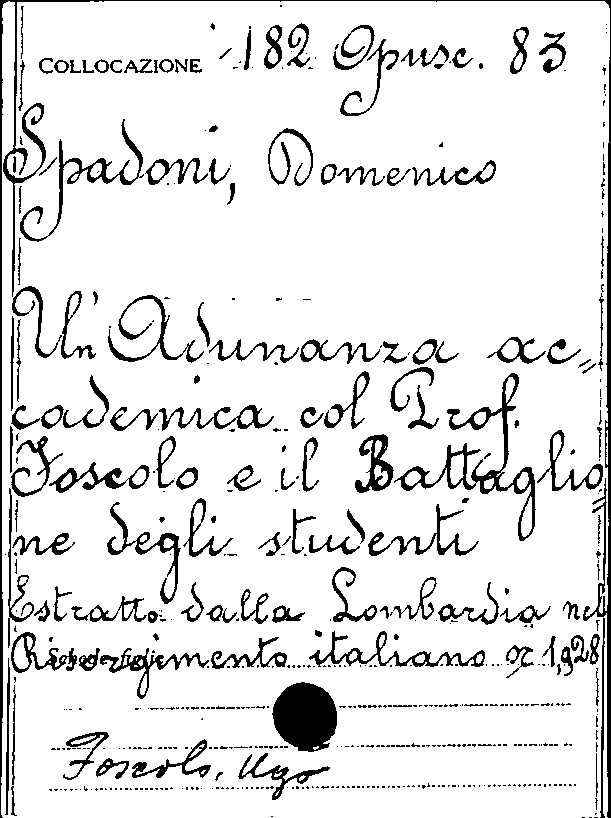 COLLOCAZIONE 182 Opusc. 83
Spadoni, Domenico
Un'Adunanza ac=
cademica col Prof.
Foscolo e il Battaglio=
ne degli studenti
Estratto dalla Lombardia nel
Risorgimento italiano 1928
Foscolo, Ugo